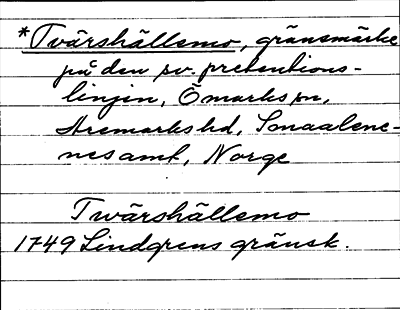 *Tvärshällemo, gränsmärke
på den sv. pretentions-
linjen, Ömarks sn,
Aremarks hd, Smaalene-
nes amt, Norge
Twärshällemo
1749 Lindgrens gränsk.